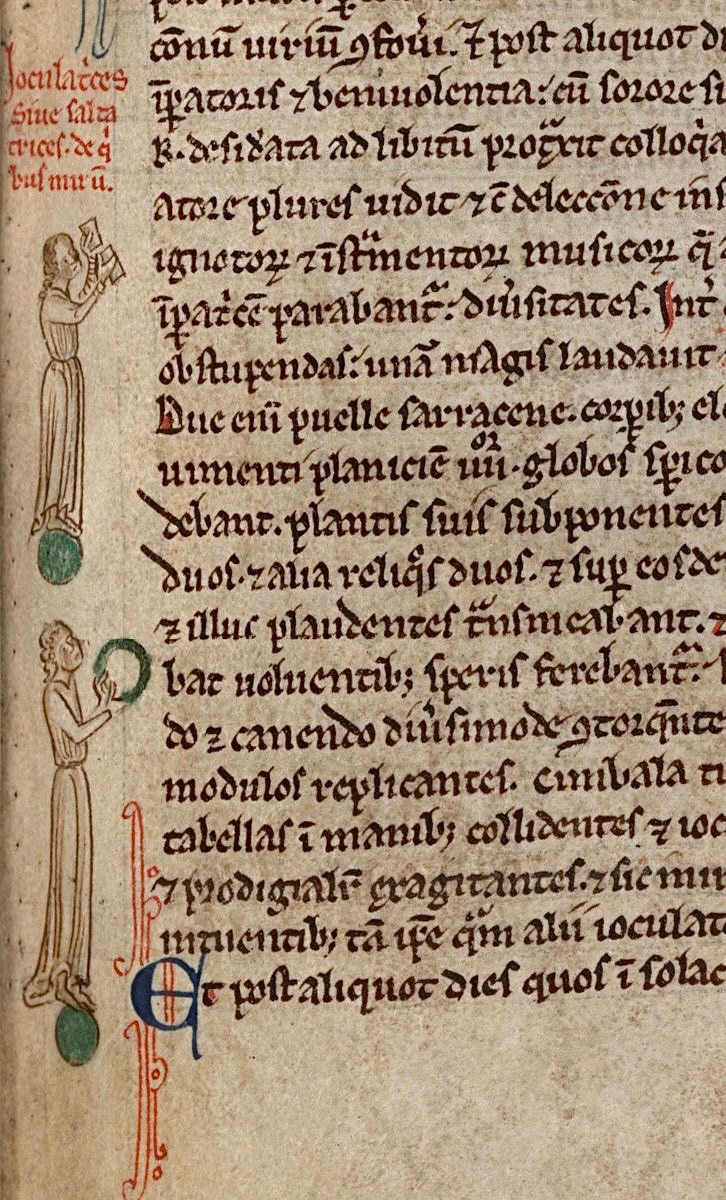 Joculatrices
Siue salta
trices. de q̇
bus mirū.
cōnū uiriū ꝯfoūi. ⁊ post aliquot di
ip̄atoris ⁊ beniuolentia: cū sorore su
R. desid̾ata ad libitū protͣxit colloq̇a
atore plures uidit ⁊ cū delectōne ins
ignotoꝝ ⁊ īstͬmentoꝝ musicoꝝ q̄
īpat̾ce parabantᷣ: diũsitates. Int̾
obstupendas: unā magis laudauit
Due eni puelle sarracene. corꝑib; ele
uimenti planiciē iiii.or globos sp̄ico
debant. plantis suis subponentes
duos. ⁊ alia reliq̊s duos. ⁊ suꝑ eosde
⁊ illuc plaudentes tͣnsmeabant. ⁊
bat uoluentib; speris ferebantᷣ.
do ⁊ canendo diũsimode ꝯtorq̄nte
modulos replicantes. Cimbala ti
tabellas ī manib; collidentes ⁊ ioc
⁊ prodigialit̾ exagitantes. ⁊ sic mir
intuentib; tā ip̄e qͣm alii ioculat
Et post aliquot dies quos ī solac